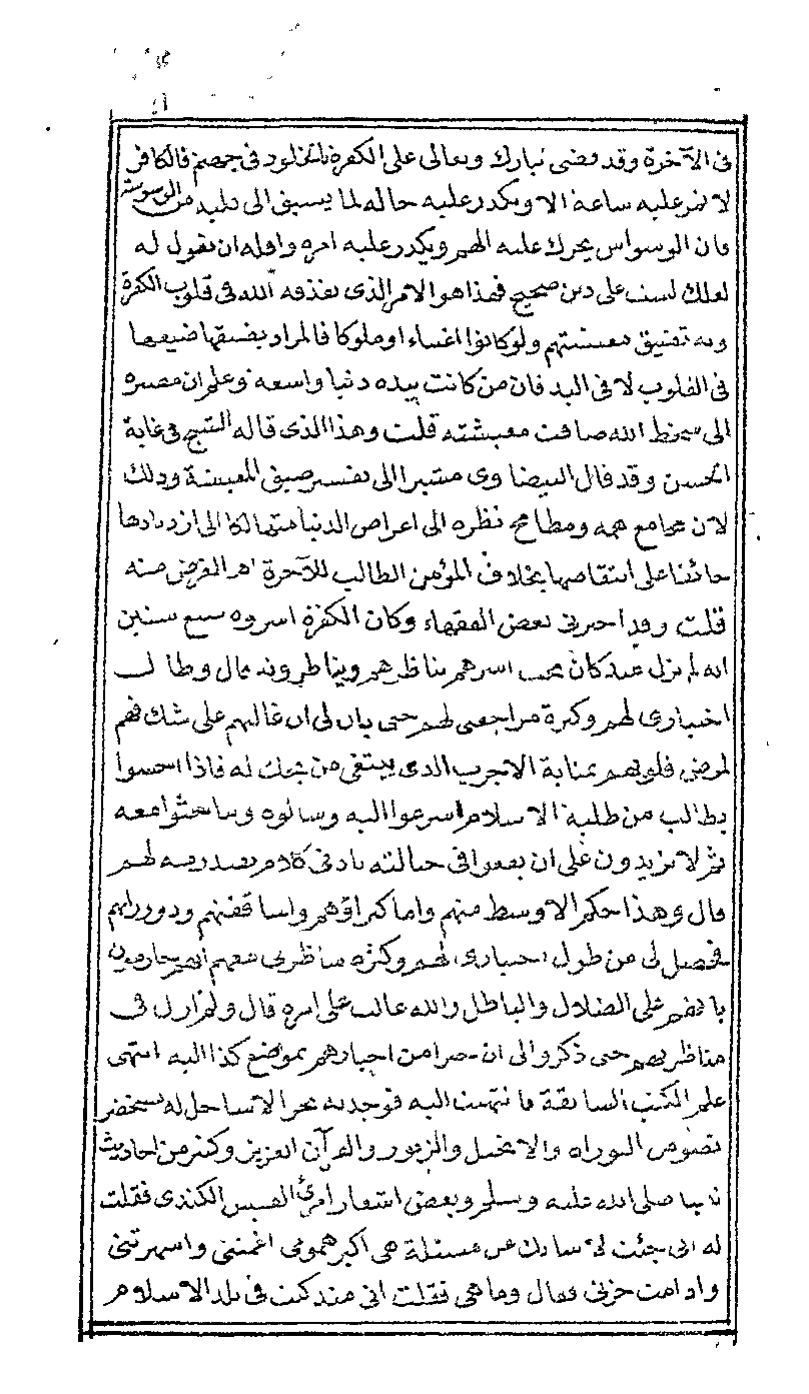 فى الآخرة وقد قضى تبارك وتعالى على الكفرة بالخلود فى جهنم فالكافر
لا تمر عليه ساعة الا ويكدر عليه حاله لما يسبق الى قلبه من الوسوسة
فان الوسواس يحرك عليه الهم ويكدر عليه امره واقله ان يقول له
لعلك لست على دين صحيح فهذا هو الامر الذى يقذفه الله فى قلوب الكفرة
وبه تضيق معيشتهم ولو كانوا اغنياء او ملوكا فالمراد بضيقها ضيقها
فى القلوب لا فى اليد فان من كانت بيده دنيا واسعة وعلم ان مصيره
الى سخط الله ضاقت معيشته قلت وهذا الذى قاله الشيخ فى غاية
الحسن وقد قال البيضاوى مشيرا الى تفسير ضيق المعيشة وذلك
لان مجامع همه ومطامح نظره الى اعراض الدنيا متهالكا الى ازديادها
خائفا على انتقاصها بخلاف المؤمن الطالب للآخرة اه الغرض منه
قلت وقد اخبرنى بعض الفقهاء وكان الكفرة اسروه سبع سنين
انه لم يزل عند كان اسرهم يناظرهم ويناظرونه قال وطالت
اختبارى لهم وكثرة مراجعتى لهم حتى بان لى ان غالبهم على شك فهم
لمرض قلوبهم بمثابة الاجرب الذى يبتغى من يحك له فاذا احسوا
بطالب من طلبة الاسلام اسرعوا اليه وسالوه وباحثوا معه
ثم لا يزيدون على ان يقعوا فى حبالته بادنى كلام يصدر منه لهم
قال وهذا حكم الاوسط منهم واما كبراؤهم واساقفتهم وذوو رايهم
فحصل لى من طول اختبارى لهم وكثرة مناظرتى معهم انهم جازمون
بانهم على الضلال والباطل والله غالب على امره قال ولم ازل فى
مناظرتهم حتى ذكروا لى ان حبرا من احبارهم بموضع كذا اليه انتهى
علم الكتب السابقة فانتهيت اليه فوجدته بحرا لا ساحل له يستحضر
نصوص التوراة والانجيل والزبور والقرآن العزيز وكثير من احاديث
نبينا صلى الله عليه وسلم وبعض اشعار امرئ القيس الكندى فقلت
له انى جئت لاسالك عن مسئلة هى اكبر همومى اغمتنى واسهرتنى
وادامت حزنى فقال وما هى فقلت انى منذ كنت فى بلد الاسلام